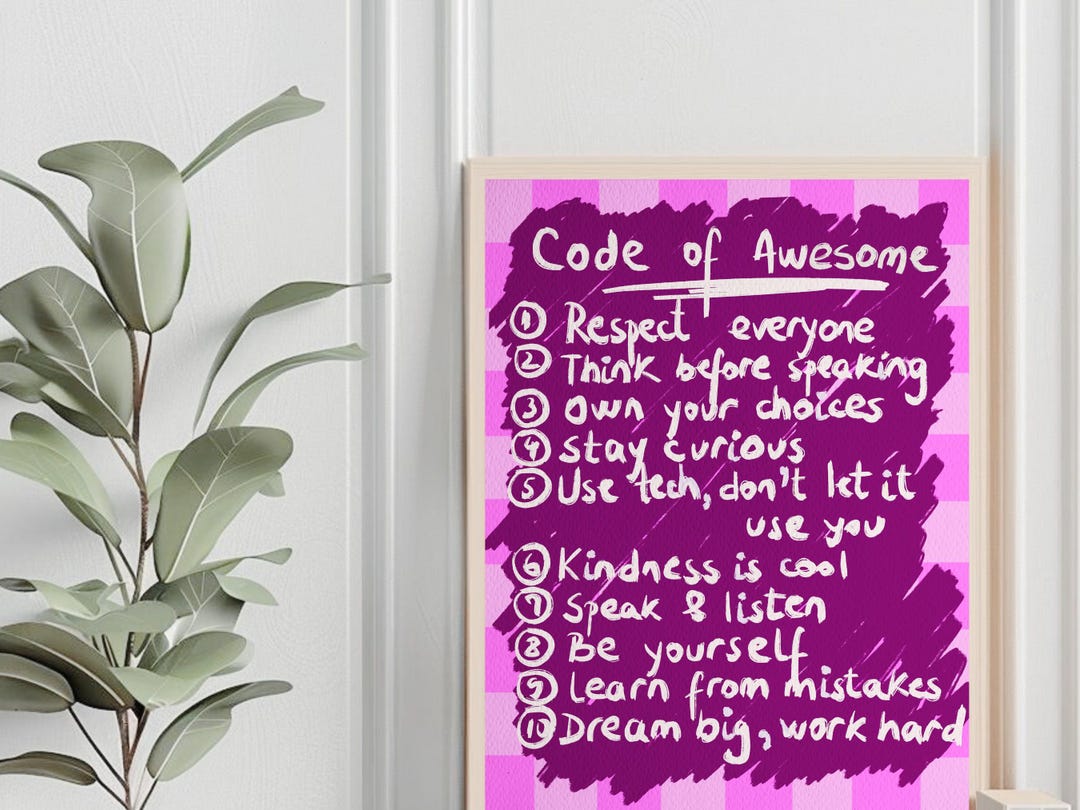 Code of Awesome
1 Respect everyone
2 Think before speaking
3 Own your choices
4 Stay curious
5 Use tech, don't let it
use you
6 Kindness is cool
7 Speak & listen
8 Be yourself
9 Learn from mistakes
10 Dream big, work hard